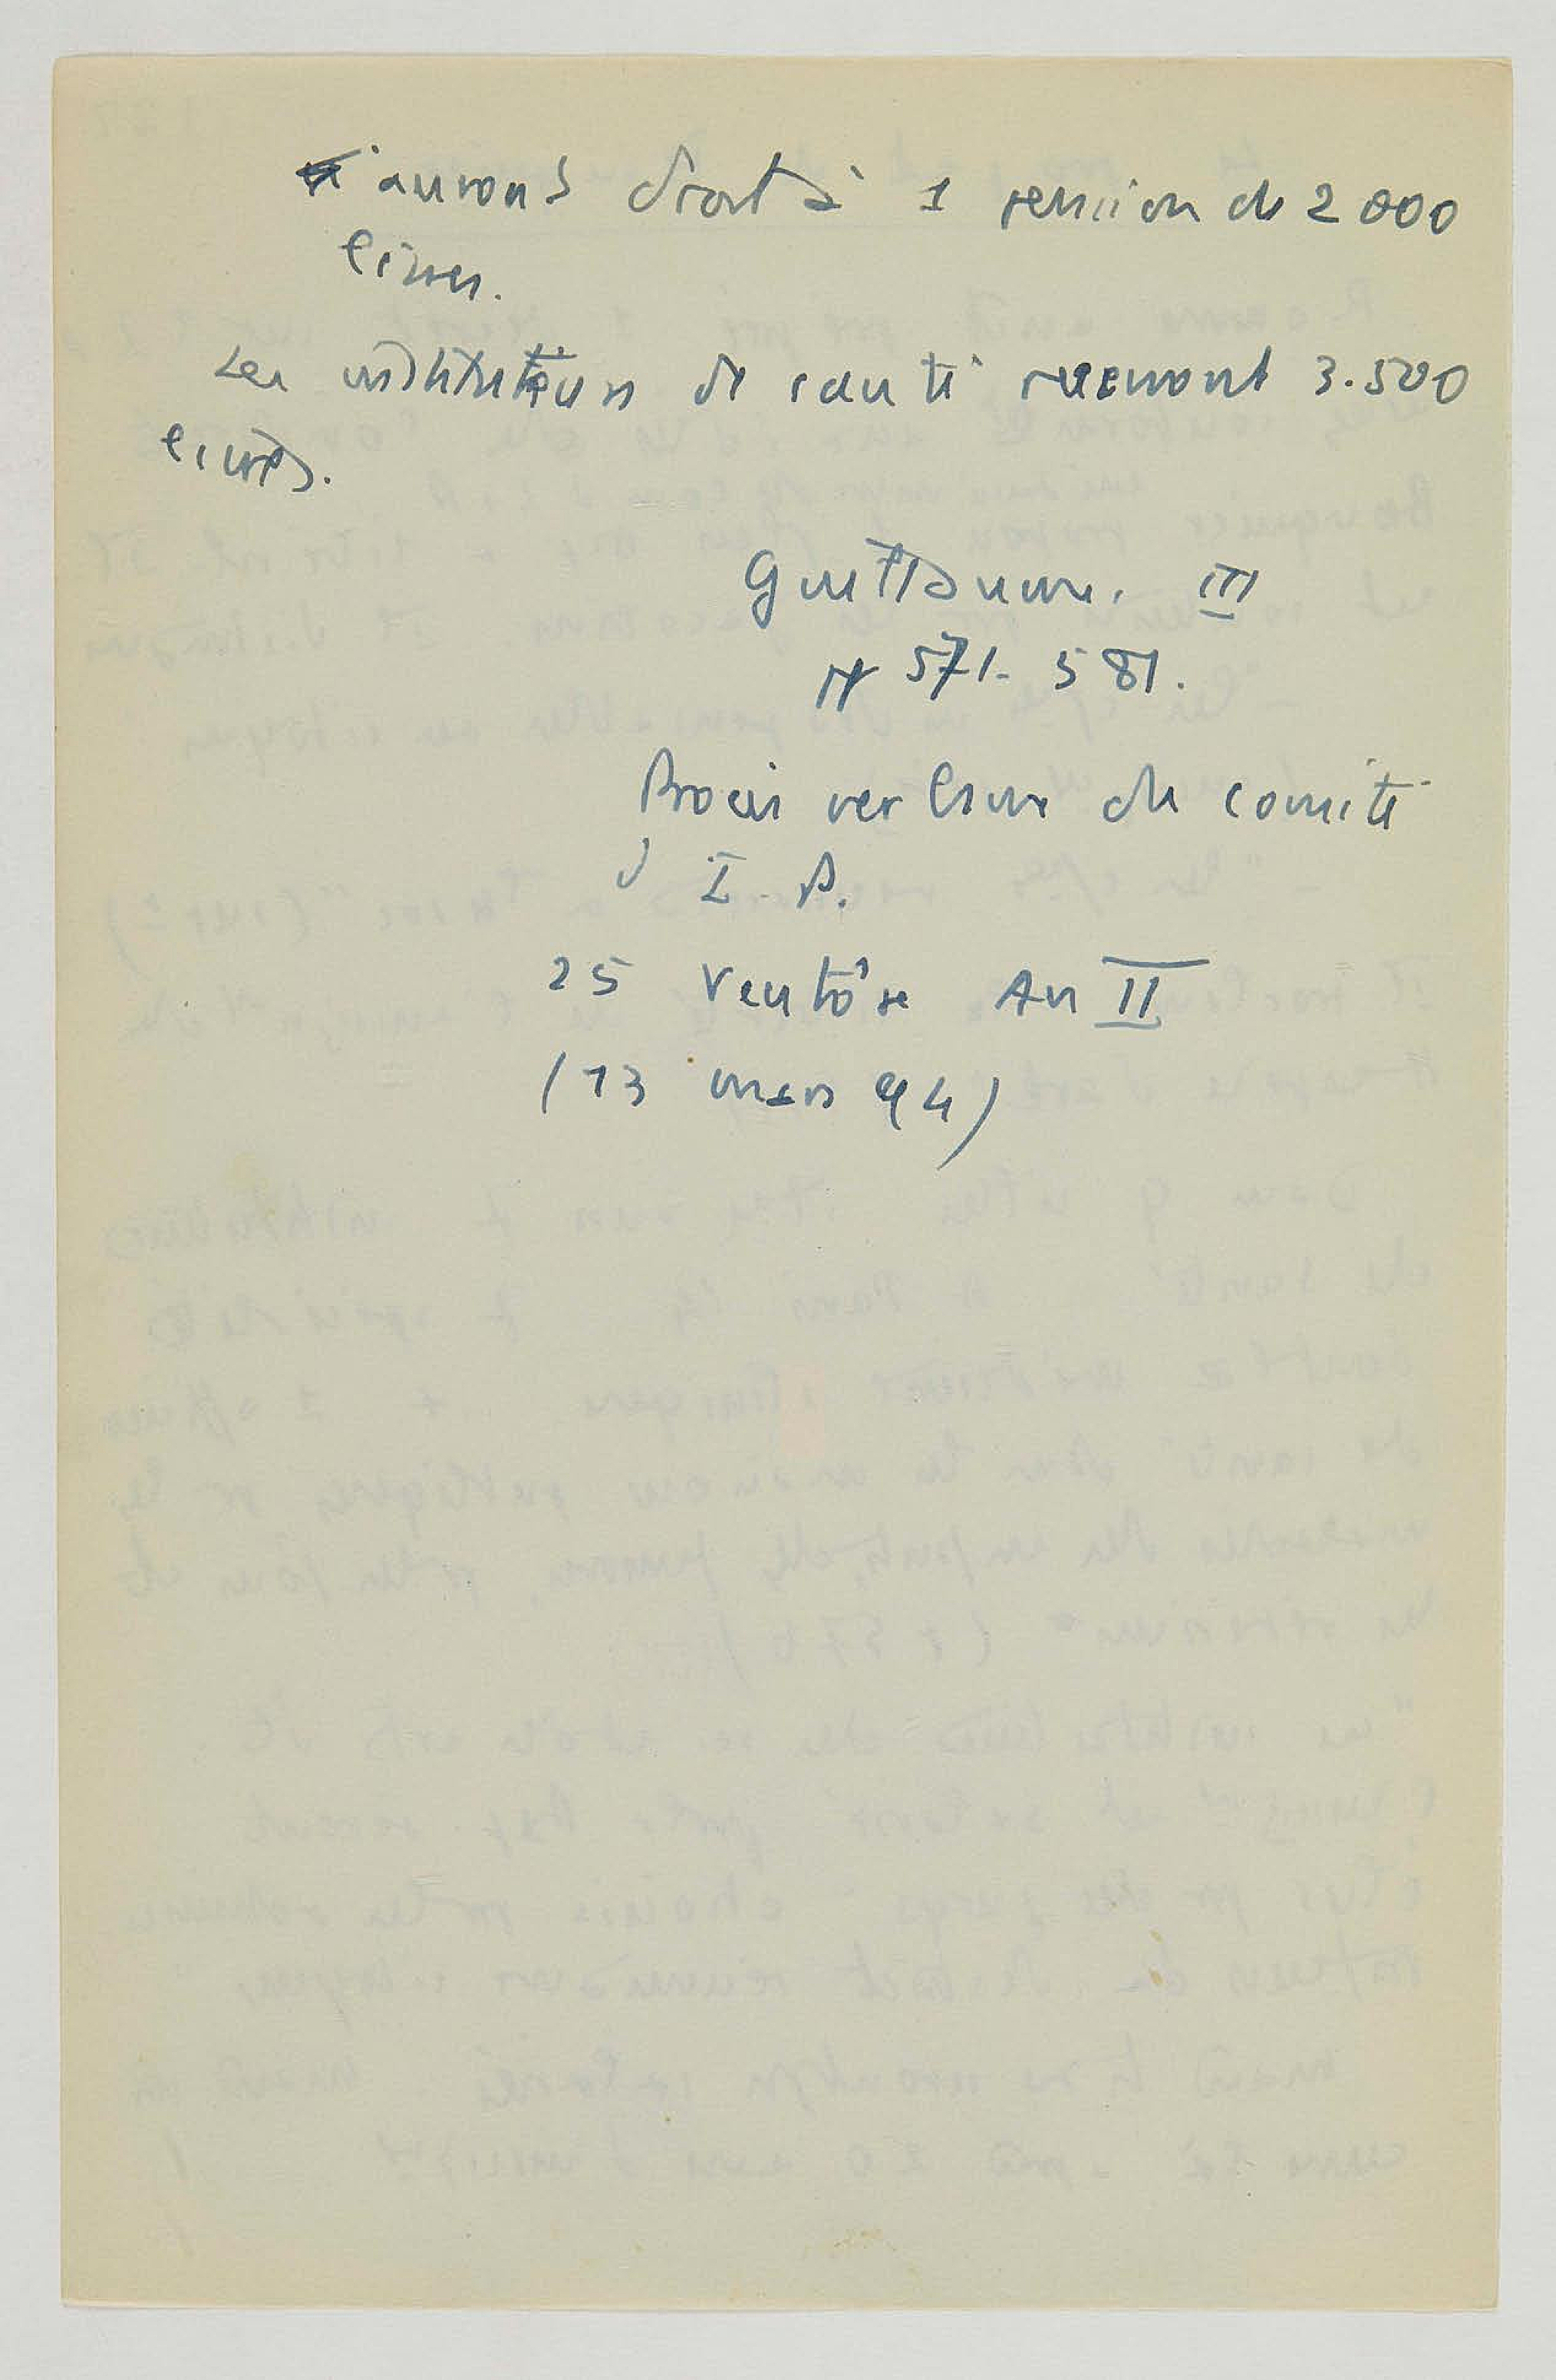 aurons droit à 1 pension de 2 000
livres.
Les instituteurs de santé recevront 3.500
livres.
Guillaume. III
N 571-581.
Procès verbaux du comité
d I. P.
25 Ventôse An II
(13 mars 94)